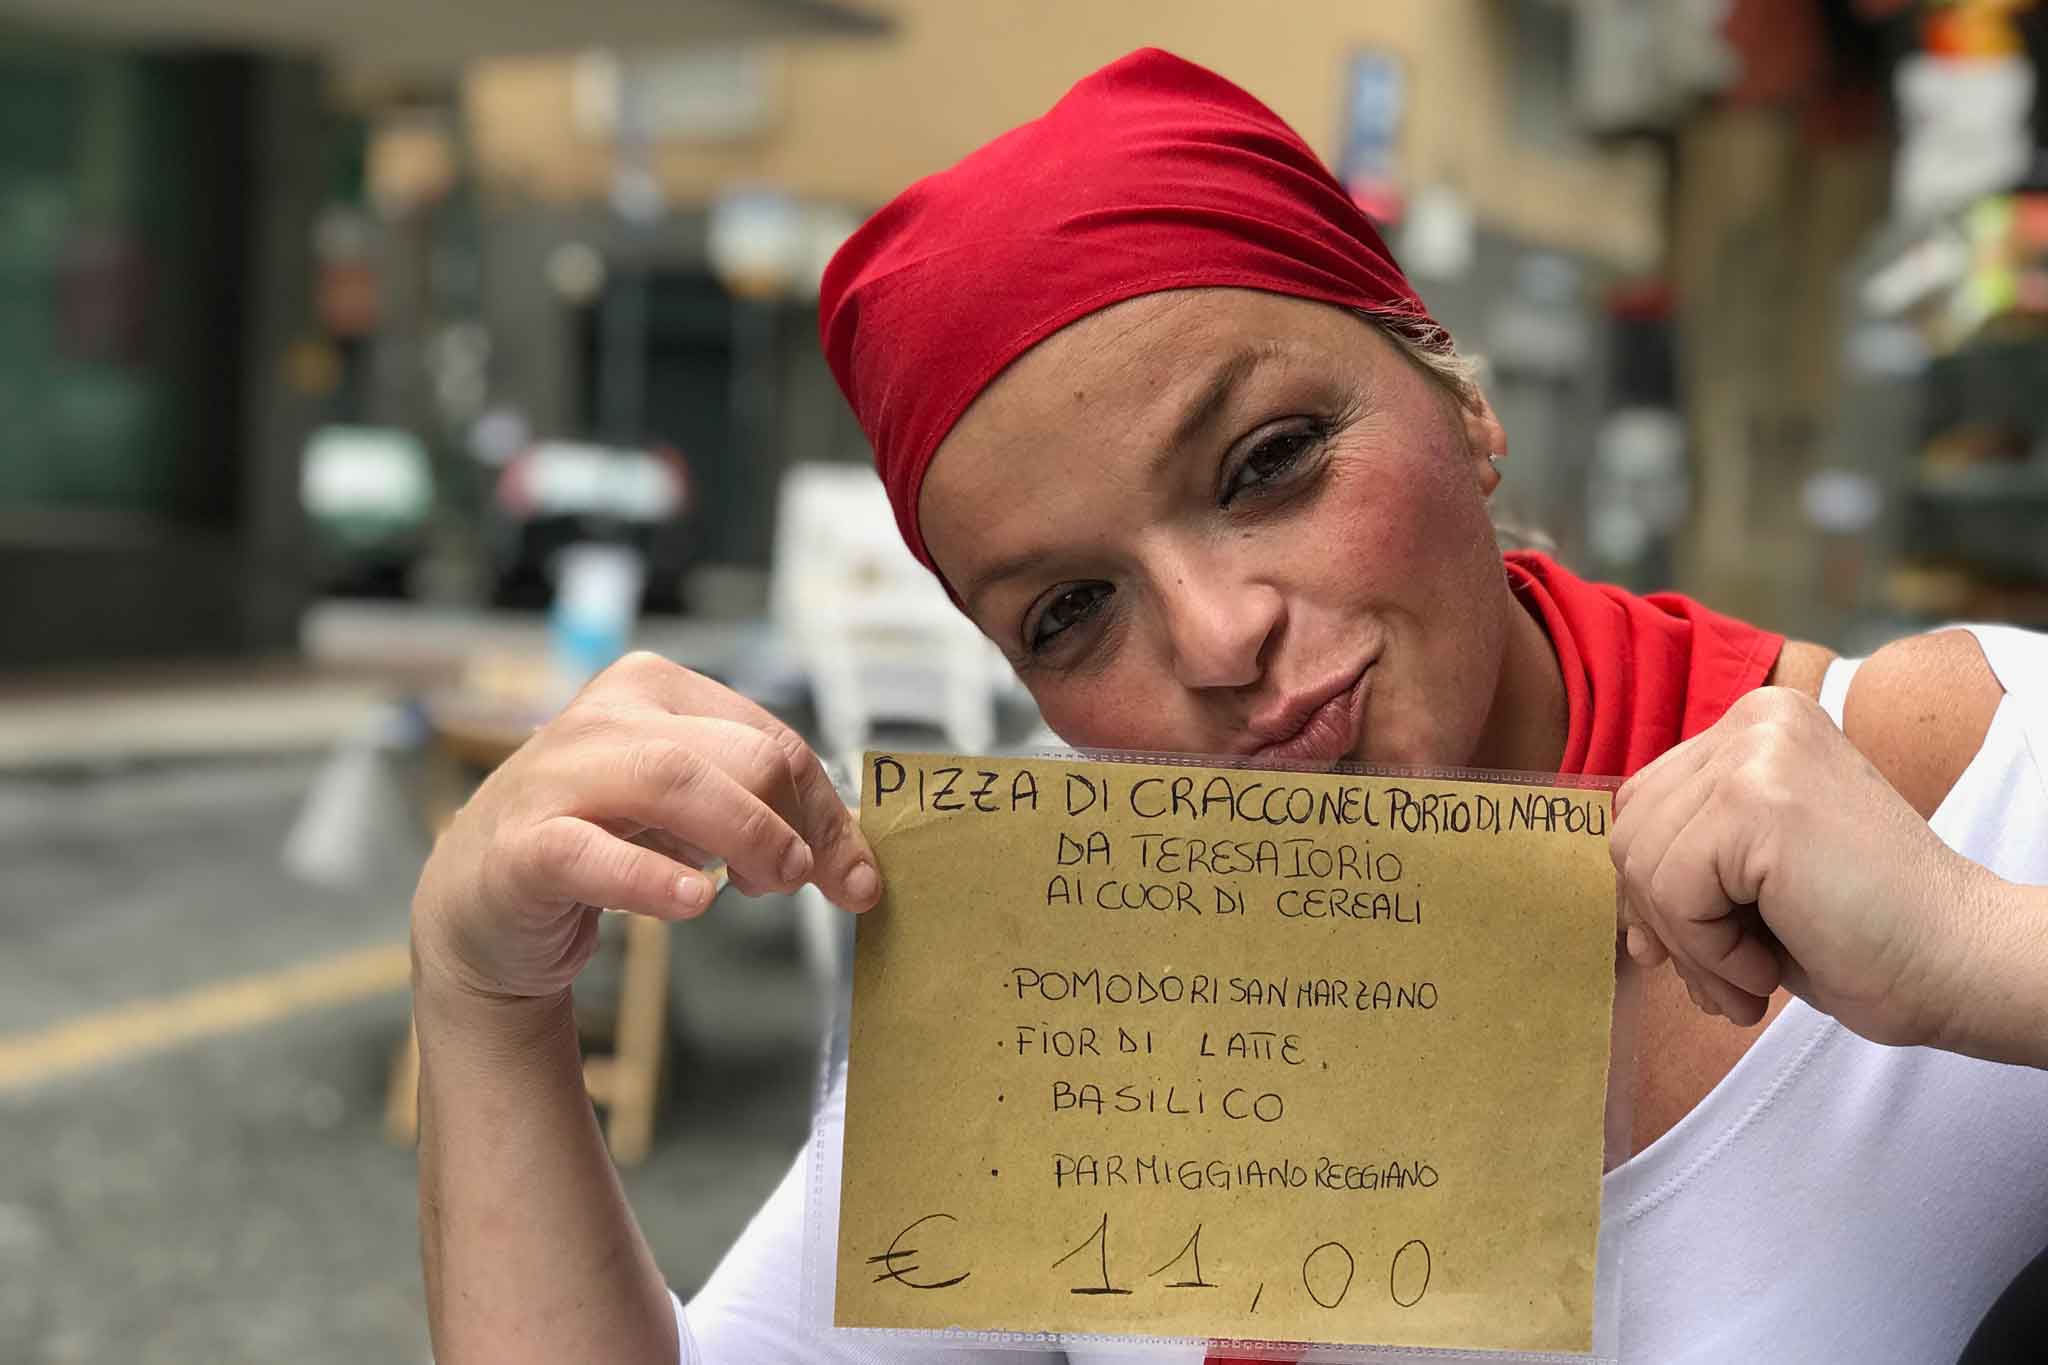 PIZZA DI CRACCO NEL PORTO DI NAPOLI
DA TERESA IORIO
AI CUOR DI CEREALI
· POMODORI SAN MARZANO
· FIOR DI LATTE
· BASILICO
· PARMIGGIANO REGGIANO
€ 11,00